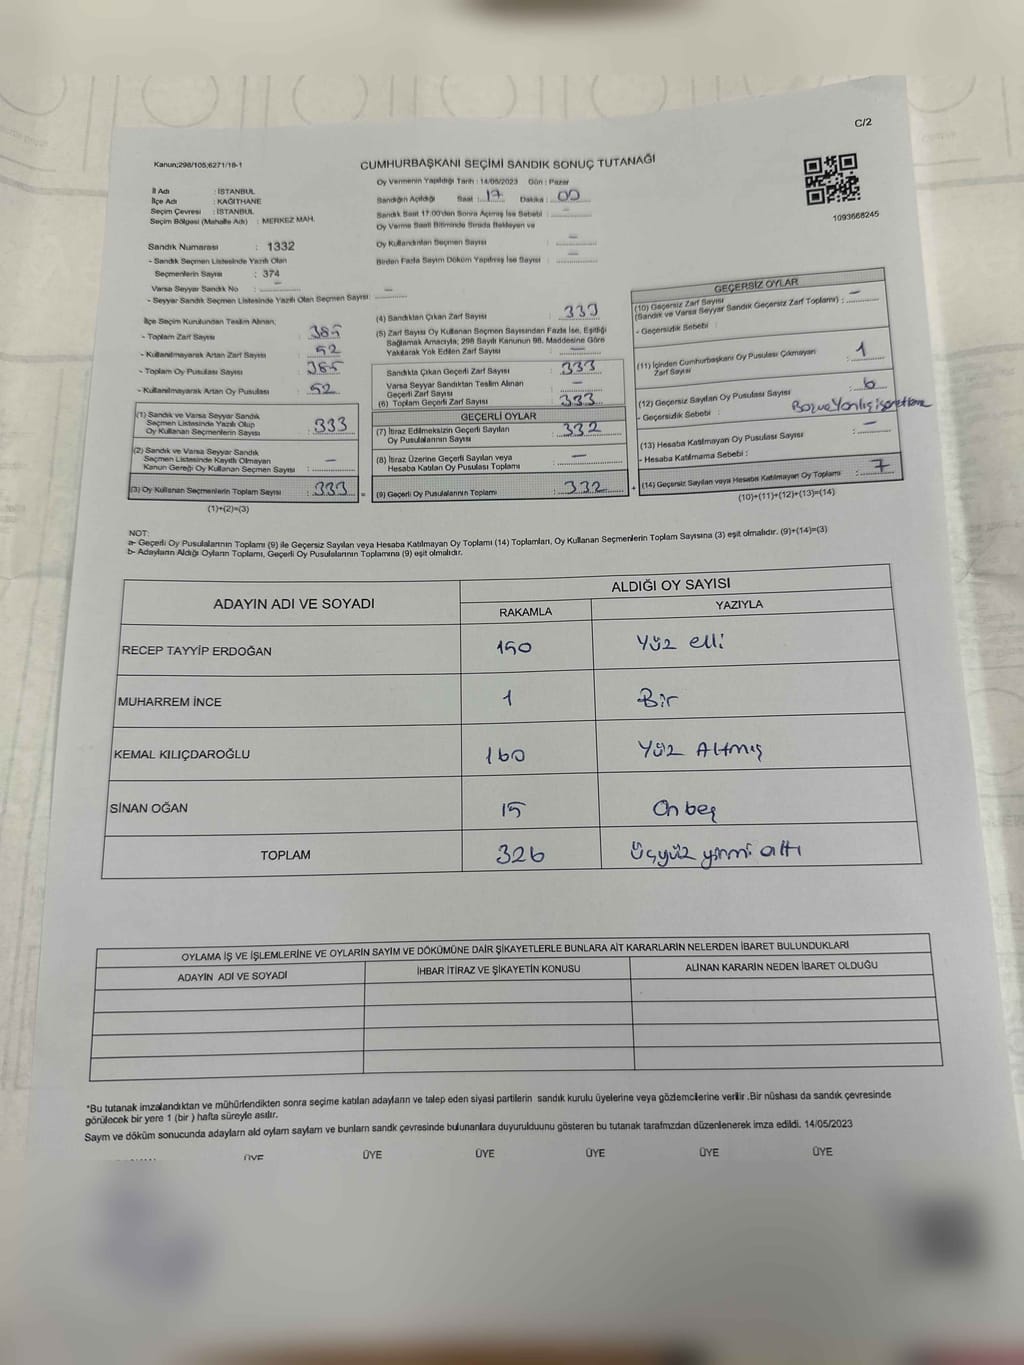 C/2
Kanun;298/105;6271/18-1
CUMHURBAŞKANI SEÇİMİ SANDIK SONUÇ TUTANAĞI
1093668245
İl Adı : İSTANBUL
İlçe Adı : KAĞITHANE
Seçim Çevresi : İSTANBUL
Seçim Bölgesi (Mahalle Adı) : MERKEZ MAH.
Sandık Numarası : 1332
- Sandık Seçmen Listesinde Yazılı Olan
Seçmenlerin Sayısı : 374
Varsa Seyyar Sandık No : -
- Seyyar Sandık Seçmen Listesinde Yazılı Olan Seçmen Sayısı: -
Oy Vermenin Yapıldığı Tarih : 14/05/2023 Gün : Pazar
Sandığın Açıldığı Saat : 17 Dakika : 00
Sandık Saat 17:00'den Sonra Açılmış İse Sebebi : -
Oy Verme Saati Bitiminde Sırada Bekleyen ve
Oy Kullandırılan Seçmen Sayısı : -
Birden Fazla Sayım Döküm Yapılmış İse Sayısı : -
İlçe Seçim Kurulundan Teslim Alınan;
- Toplam Zarf Sayısı : 385
- Kullanılmayarak Artan Zarf Sayısı : 52
- Toplam Oy Pusulası Sayısı : 385
- Kullanılmayarak Artan Oy Pusulası : 52
(1) Sandık ve Varsa Seyyar Sandık
Seçmen Listesinde Yazılı Olup
Oy Kullanan Seçmenlerin Sayısı : 333
(2) Sandık ve Varsa Seyyar Sandık
Seçmen Listesinde Kayıtlı Olmayan
Kanun Gereği Oy Kullanan Seçmen Sayısı : -
(3) Oy Kullanan Seçmenlerin Toplam Sayısı : 333 =
(1)+(2)=(3)
(4) Sandıktan Çıkan Zarf Sayısı : 333
(5) Zarf Sayısı Oy Kullanan Seçmen Sayısından Fazla İse, Eşitliği
Sağlamak Amacıyla; 298 Sayılı Kanunun 98. Maddesine Göre
Yakılarak Yok Edilen Zarf Sayısı : -
Sandıkta Çıkan Geçerli Zarf Sayısı : 333
Varsa Seyyar Sandıktan Teslim Alınan
Geçerli Zarf Sayısı : -
(6) Toplam Geçerli Zarf Sayısı : 333
GEÇERLİ OYLAR
(7) İtiraz Edilmeksizin Geçerli Sayılan
Oy Pusulalarının Sayısı : 332
(8) İtiraz Üzerine Geçerli Sayılan veya
Hesaba Katılan Oy Pusulası Toplamı : -
(9) Geçerli Oy Pusulalarının Toplamı : 332 +
GEÇERSİZ OYLAR
(10) Geçersiz Zarf Sayısı
(Sandık ve Varsa Seyyar Sandık Geçersiz Zarf Toplamı) : -
- Geçersizlik Sebebi :
(11) İçinden Cumhurbaşkanı Oy Pusulası Çıkmayan
Zarf Sayısı : 1
(12) Geçersiz Sayılan Oy Pusulası Sayısı : 6
- Geçersizlik Sebebi :
(13) Hesaba Katılmayan Oy Pusulası Sayısı : -
- Hesaba Katılmama Sebebi :
(14) Geçersiz Sayılan veya Hesaba Katılmayan Oy Toplamı : 7
(10)+(11)+(12)+(13)=(14)
NOT:
a- Geçerli Oy Pusulalarının Toplamı (9) ile Geçersiz Sayılan veya Hesaba Katılmayan Oy Toplamı (14) Toplamları, Oy Kullanan Seçmenlerin Toplam Sayısına (3) eşit olmalıdır. (9)+(14)=(3)
b- Adayların Aldığı Oyların Toplamı, Geçerli Oy Pusulalarının Toplamına (9) eşit olmalıdır.
ADAYIN ADI VE SOYADI ALDIĞI OY SAYISI
RAKAMLA YAZIYLA
RECEP TAYYİP ERDOĞAN 150 Yüz elli
MUHARREM İNCE 1 Bir
KEMAL KILIÇDAROĞLU 160 Yüz Altmış
SİNAN OĞAN 15 On beş
TOPLAM 326 üçyüz yirmi altı
OYLAMA İŞ VE İŞLEMLERİNE VE OYLARIN SAYIM VE DÖKÜMÜNE DAİR ŞİKAYETLERLE BUNLARA AİT KARARLARIN NELERDEN İBARET BULUNDUKLARI
ADAYIN ADI VE SOYADI İHBAR İTİRAZ VE ŞİKAYETİN KONUSU ALINAN KARARIN NEDEN İBARET OLDUĞU
*Bu tutanak imzalandıktan ve mühürlendikten sonra seçime katılan adayların ve talep eden siyasi partilerin sandık kurulu üyelerine veya gözlemcilerine verilir .Bir nüshası da sandık çevresinde
görülecek bir yere 1 (bir ) hafta süreyle asılır.
Saym ve döküm sonucunda adayların ald oyların saylam ve bunların sandk çevresinde bulunanlara duyurulduunu gösteren bu tutanak tarafmzdan düzenlenerek imza edildi. 14/05/2023
ÜYE ÜYE ÜYE ÜYE ÜYE ÜYE